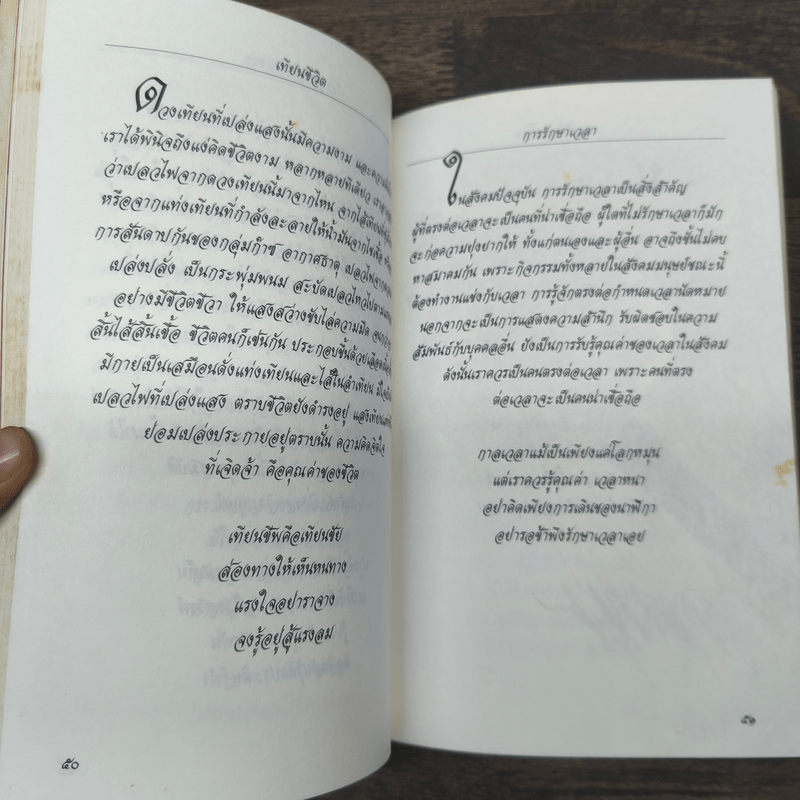 เทียนชีวิต
ดวงเทียนที่เปล่งแสงนั้นมีความงาม และความ
เราได้พินิจถึงแง่คิดชีวิตงาม หลากหลายทีเดียว เรา
ว่าเปลวไฟจากดวงเทียนนี้มาจากไหน จากไส้เทียน
หรือจากแท่งเทียนที่กำลังละลายให้น้ำมันจากไขเนื้อ
การสันดาปกันของกลุ่มก๊าซ อากาศธาตุ เปลวไฟจาก
เปล่งปลั่ง เป็นกระพุ่มพนม สะบัดเปลวไหวไปตาม
อย่างมีชีวิตชีวา ให้แสงสว่างขับไล่ความมืด จน
สิ้นไส้สิ้นเชื้อ ชีวิตคนก็เช่นกัน ประกอบขึ้นด้วยเลือด
มีกายเป็นเสมือนดั่งแท่งเทียนและไส้ในลำเทียน มี
เปลวไฟที่เปล่งแสง ตราบชีวิตยังดำรงอยู่ แสงเทียน
ย่อมเปล่งประกายอยู่ตราบนั้น ความคิดจิตใจ
ที่เจิดจ้า คือคุณค่าของชีวิต
เทียนชีพคือเทียนชัย
ส่องทางให้เห็นหนทาง
แรงใจอย่าราจาง
จงรู้อยู่สู้แรงลม
๕๐
การรักษาเวลา
ในสังคมปัจจุบัน การรักษาเวลาเป็นสิ่งสำคัญ
ผู้ที่ตรงต่อเวลาจะเป็นคนที่น่าเชื่อถือ ผู้ใดที่ไม่รักษาเวลาก็มัก
จะก่อความยุ่งยากให้ ทั้งแก่ตนเองและผู้อื่น อาจถึงขั้นไม่คบ
หาสมาคมกัน เพราะกิจกรรมทั้งหลายในสังคมมนุษย์ขณะนี้
ต้องทำงานแข่งกับเวลา การรู้จักตรงต่อกำหนดเวลานัดหมาย
นอกจากจะเป็นการแสดงความสำนึก รับผิดชอบในความ
สัมพันธ์กับบุคคลอื่น ยังเป็นการรับรู้คุณค่าของเวลาในสังคม
ดังนั้นเราควรเป็นคนตรงต่อเวลา เพราะคนที่ตรง
ต่อเวลาจะเป็นคนน่าเชื่อถือ
กาลเวลาแม้เป็นเพียงแค่โลกหมุน
แต่เราควรรู้คุณค่า เวลาหนา
อย่าคิดเพียงการเดินของนาฬิกา
อย่ารอช้าพึงรักษาเวลาเอย
๕๑